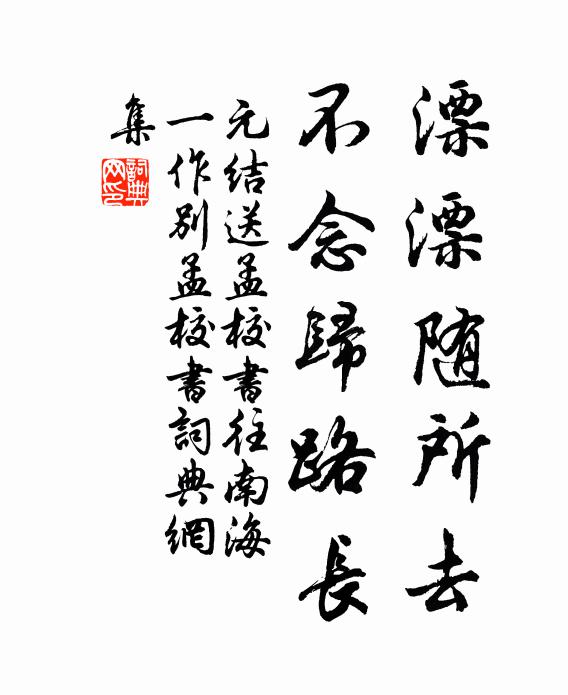 漂漂随所去
不念歸路長
元结送孟校書往南海
一作别孟校書詞典網
集
詞典
网印